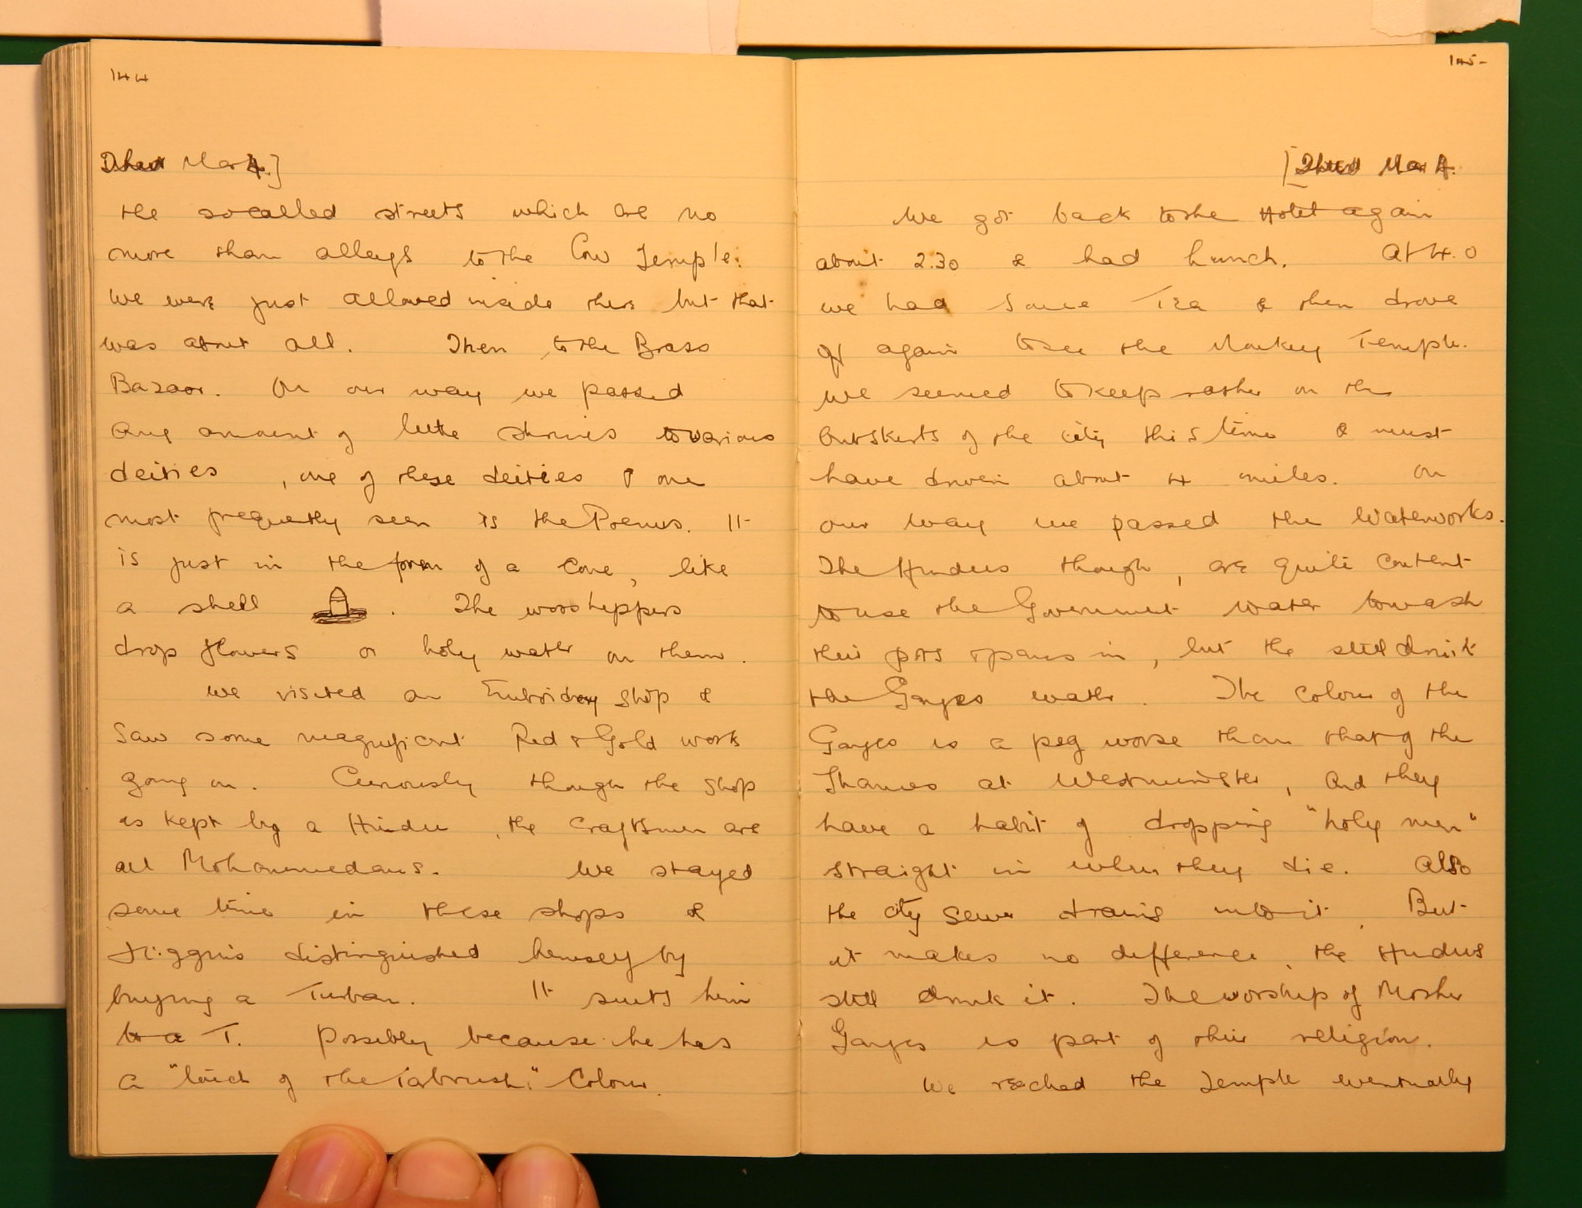 144
Thurs Mar 4.]
the socalled streets which are no
more than alleys to the Cow Temple.
We were just allowed inside there but that
was about all. Then to the Brass
Bazaar. On our way we passed
any amount of little shrines to various
deities, one of these deities & one
most frequently seen is the Poenus. It
is just in the form of a Cone, like
a shell . The worshippers
drop flowers or holy water on them.
We visited an Embroidery shop &
Saw some magnificent Red & Gold work
going on. Curiously though the shop
is kept by a Hindu, the craftsmen are
all Mohammedans. We stayed
some time in these shops &
Higgins distinguished himself by
buying a Turban. It suits him
to a T. Possibly because he has
a "touch of the tarbrush." Colour.
145-
[Thurs Mar 4.
We got back to the Hotel again
about 2.30 & had lunch. At 4.0
we had some Tea & then drove
off again to see the Monkey Temple.
We seemed to keep rather on the
outskirts of the city this time & must
have driven about 4 miles. On
our way we passed the Waterworks.
The Hindus though, are quite content
to use the Government water to wash
their pots & pans in, but the still drink
the Ganges water. The colour of the
Ganges is a peg worse than that of the
Thames at Westminster, and they
have a habit of dropping "holy men"
straight in when they die. Also
the city sewer drains into it. But
it makes no difference, the Hindus
still drink it. The worship of Mother
Ganges is part of their religion.
We reached the Temple eventually